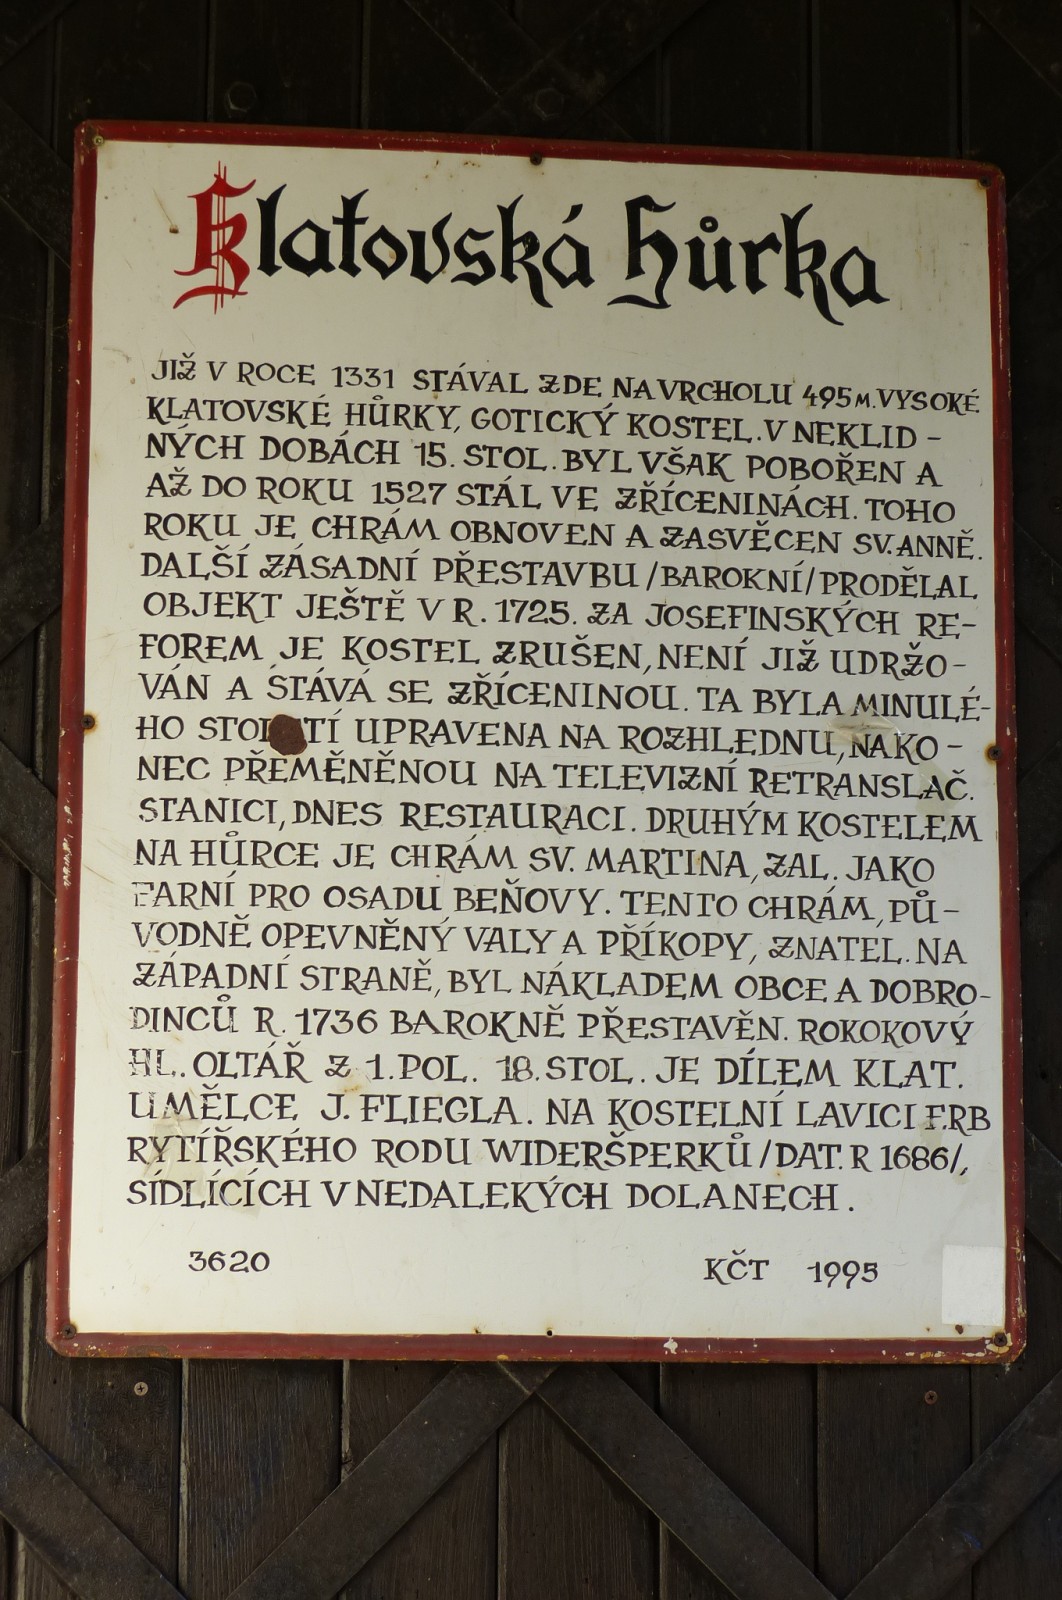 Klatovská hůrka
JIŽ V ROCE 1331 STÁVAL ZDE NA VRCHOLU 495 M. VYSOKÉ
KLATOVSKÉ HŮRKY, GOTICKÝ KOSTEL. V NEKLID-
NÝCH DOBÁCH 15. STOL. BYL VŠAK POBOŘEN A
AŽ DO ROKU 1527 STÁL VE ZŘÍCENINÁCH. TOHO
ROKU JE CHRÁM OBNOVEN A ZASVĚCEN SV. ANNĚ.
DALŠÍ ZÁSADNÍ PŘESTAVBU /BAROKNÍ/ PRODĚLAL
OBJEKT JEŠTĚ V R. 1725. ZA JOSEFINSKÝCH RE-
FOREM JE KOSTEL ZRUŠEN, NENÍ JIŽ UDRŽO-
VÁN A STÁVÁ SE ZŘÍCENINOU. TA BYLA MINULÉ-
HO STOLETÍ UPRAVENA NA ROZHLEDNU, NAKO-
NEC PŘEMĚNĚNOU NA TELEVIZNÍ RETRANSLAČ.
STANICI, DNES RESTAURACI. DRUHÝM KOSTELEM
NA HŮRCE JE CHRÁM SV. MARTINA, ZAL. JAKO
FARNÍ PRO OSADU BEŇOVY. TENTO CHRÁM, PŮ-
VODNĚ OPEVNĚNÝ VALY A PŘÍKOPY, ZNATEL. NA
ZÁPADNÍ STRANĚ, BYL NÁKLADEM OBCE A DOBRO-
DINCŮ R. 1736 BAROKNĚ PŘESTAVĚN. ROKOKOVÝ
HL. OLTÁŘ Z 1. POL. 18. STOL. JE DÍLEM KLAT.
UMĚLCE J. FLIEGLA. NA KOSTELNÍ LAVICI ERB
RYTÍŘSKÉHO RODU WIDERŠPERKŮ /DAT. R 1686/,
SÍDLÍCÍCH V NEDALEKÝCH DOLANECH.
3620 KČT 1995